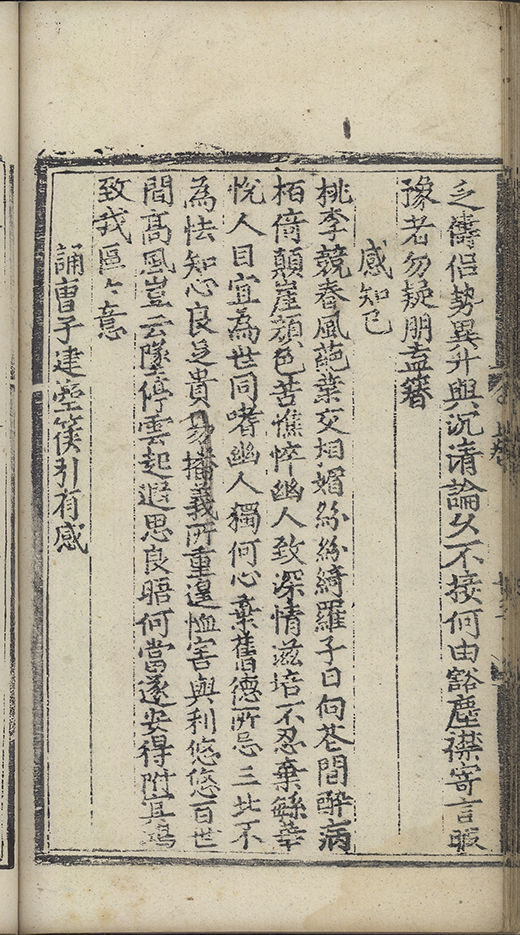 乏儔侶勢異升與沉清論久不接何由豁塵襟寄言暇
豫者勿疑朋盍簪
感知己
桃李競春風葩葉交相媚紛紛綺羅子日向花間醉病
栢倚顛崖顔色苦憔悴幽人致深情滋培不忍棄繁華
悅人目宜為世同嗜幽人獨何心棄舊德所忌三北不
為怯知心良足貴 播義所重遑恤害與利悠悠百世
間高風豈云墜停雲起遐思良晤何當遂安得附冥鴻
致我區々意
誦曹子建箜篌引有感